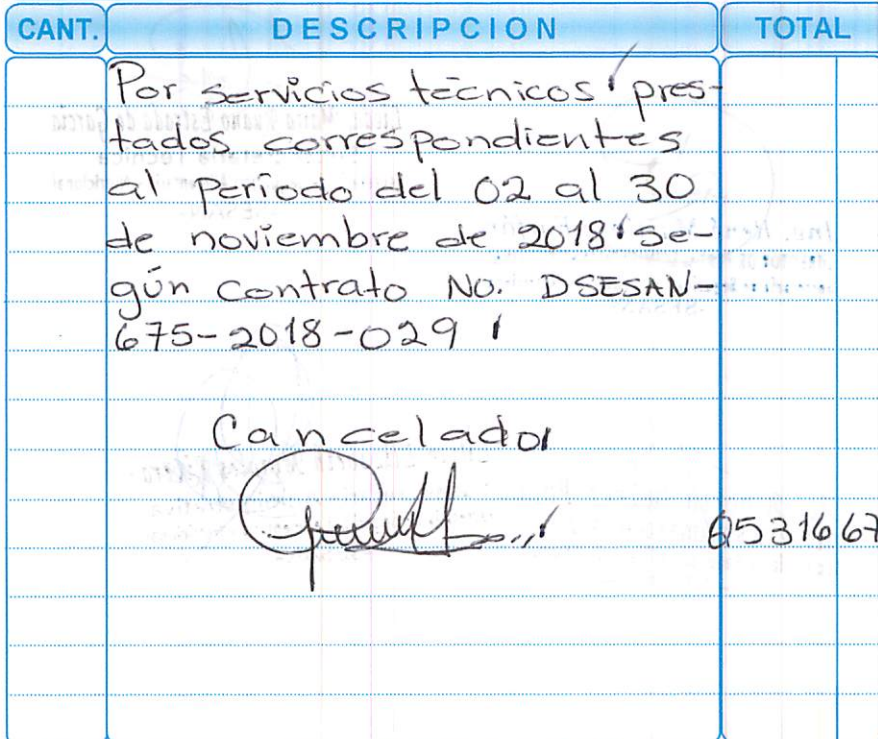 CANT. DESCRIPCION TOTAL
Por servicios técnicos pres-
tados correspondientes
al período del 02 al 30
de noviembre de 2018 se-
gún contrato No. DSESAN-
675-2018-029
Cancelado
Q5316 67